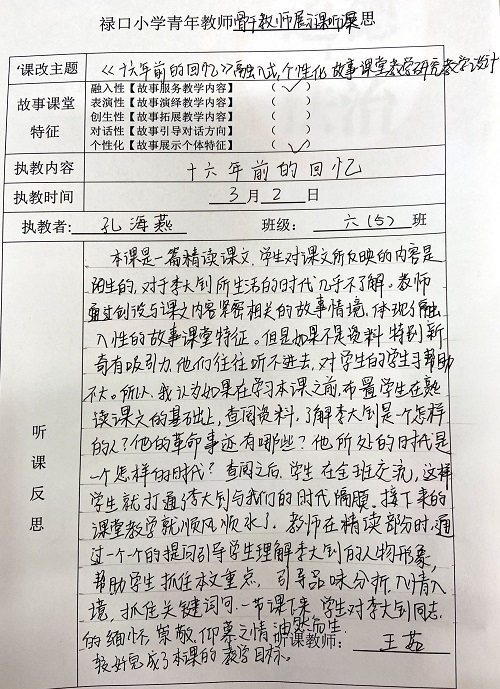 禄口小学青年教师骨干教师展示课听课思
课改主题
《十六年前的回忆》融入式、个性化故事课堂教学研究教学设计
故事课堂
特征
融入性【故事服务教学内容】 （✓）
表演性【故事演绎教学内容】 （ ）
创生性【故事拓展教学内容】 （ ）
对话性【故事引导对话方向】 （ ）
个性化【故事展示个体特征】 （✓）
执教内容 十六年前的回忆
执教时间 3月2日
执教者: 孔海燕 班级: 六（5）班
听课反思
本课是一篇精读课文，学生对课文所反映的内容是
陌生的，对于李大钊所生活的时代几乎不了解。教师
通过创设与课文内容紧密相关的故事情境，体现了融
入性的故事课堂特征。但是如果不是资料特别新
奇有吸引力，他们往往听不进去，对学生的学习帮助
不大。所以，我认为如果在学习本课之前，布置学生在熟
读课文的基础上，查阅资料，了解李大钊是个怎样
的人？他的革命事迹有哪些？他所处的时代是
一个怎样的时代？查阅之后，学生在全班交流，这样
学生就打通了李大钊与我们的时代隔膜。接下来的
课堂教学就顺风顺水了。教师在精读部分时，通
过一个个的提问引导学生理解李大钊的人物形象，
帮助学生抓住本文重点，引导品味分析，入情入
境，抓住关键词句。一节课下来，学生对李大钊同志
的缅怀、崇敬、仰慕之情油然而生
较好完成了本课的教学目标。
听课教师: 王茹